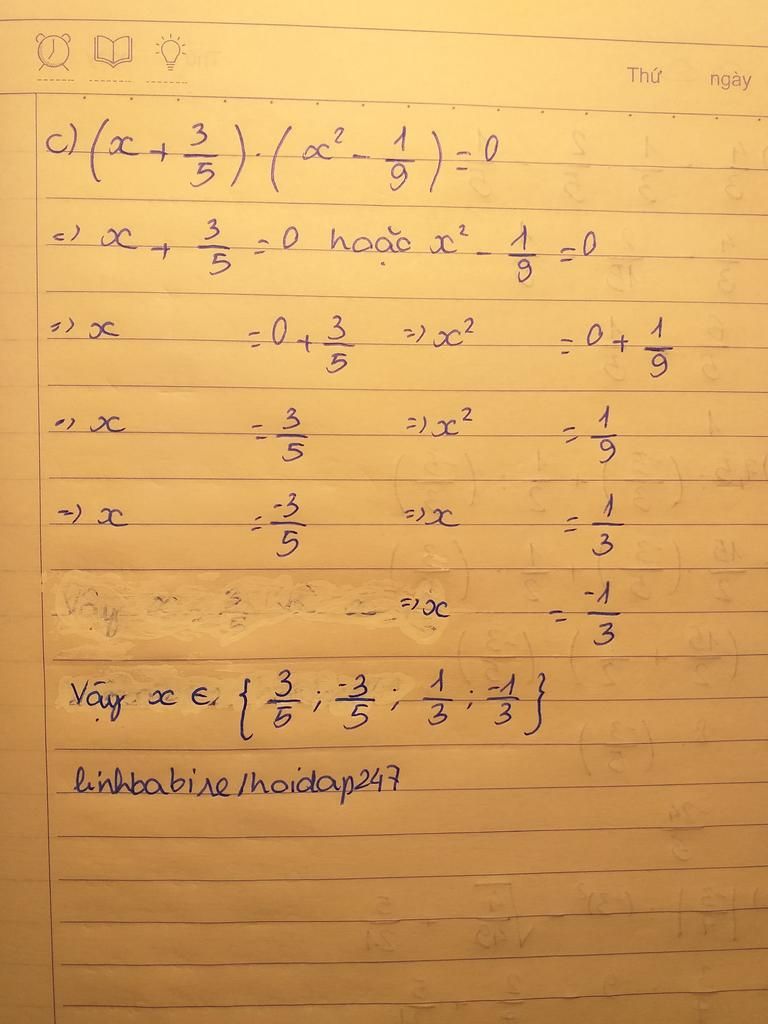 Thứ ngày
c) (x + 3/5) . (x² - 1/9) = 0
=> x + 3/5 = 0 hoặc x² - 1/9 = 0
=> x = 0 + 3/5 => x² = 0 + 1/9
=> x = 3/5 => x² = 1/9
=> x = -3/5 => x = 1/3
=> x = -1/3
Vậy x ∈ { 3/5 ; -3/5 ; 1/3 ; -1/3 }
linhbabire/hoidap247